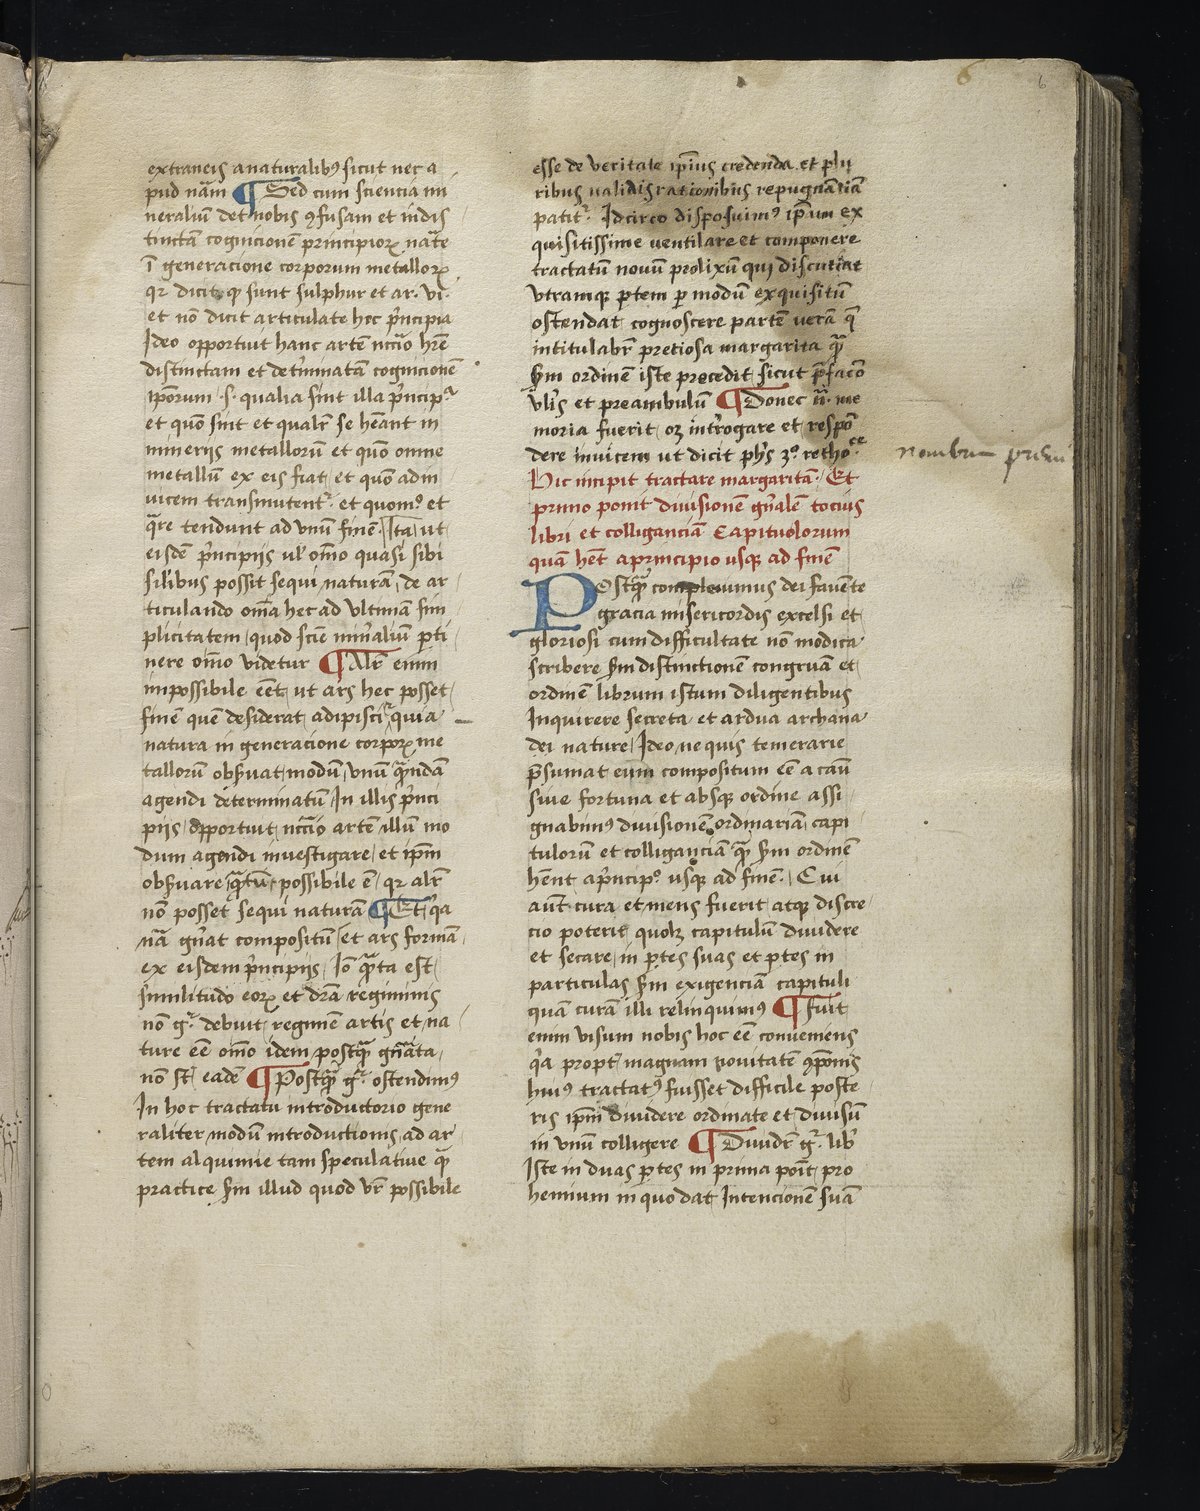 6
6
extraneis a naturalib⁹ sicut nec a
pud nām ¶ Sed cum sciencia mi
neraliū det nobis ꝯfusam et indis
tinctā cognicionē principioꝝ nat̄e
ī generacione corporum metalloꝝ
qꝛ dicit ꝙ sunt sulphur et ar. vi.
et nō dicit articulate hec p̄ncipia
Ideo opportuit hanc artē nc̄cio hr̄e
distinctam et det̄minatā cognicionē
ip̄orum .s. qualia sint illa p̄ncipᵃ
et quō sint et qualr̄ se hēant in
mineriis metallorū et quō omne
metallū ex eis fiat et quō adin
vicem transmutent᷑ et quomᵒ et
q̄re tendunt ad vnū finē. Ita ut
eisdē p̄ncipijs ul̄ om̄o quasi sibi
sil̄ibus possit sequi naturā de ar
ticulando om̄a hec ad vltimā sim
plicitatem quod scīe min̄aliū p̄ti
nere om̄o videtur ¶ Alr̄ enim
impossibile eēt ut ars hec posset
finē quē desiderat adipisci quia
natura in generacione corpoꝝ me
tallorū obs̄uat modū vnū q̄ndā
agendi determinatū In illis p̄nci
pijs opportuit nc̄cio artē illū mo
dum agendi investigare et ip̄m
obs̄uare q̄tū possibile ē qꝛ alr̄
nō posset sequi naturā ¶ Et qᵃ
nā gn̄at compositū et ars formā
ex eisdem p̄ncipijs Iō q̄ta est
similitudo eoꝝ et dr̄a regiminis
nō gᵒ debuit regimē artis et na
ture eē om̄o idem postq̄ gn̄ata
nō st̄ eadē ¶ Postq̄ gᵒ ostendim⁹
In hoc tractatu introductorio gene
raliter modū introductionis ad ar
tem alquimie tam speculatiue q̄
practice s̄m illud quod vr̄ possibile
esse de veritate ip̄ius credenda et plu
ribus validis rationibus repugnantiā
patit᷑. Idcirco disposuim⁹ ip̄um ex
quisitissime ventilare et componere
tractatū nouū prolixū qui discutiat
vtramqꝫ p̄tem p̄ modū exquisitū
ostendat cognoscere partē verā q̄
intitulabr̄ pretiosa margarita q̄
s̄m ordinē iste procedit sicut p̄facō
vl̄is et preambulū ¶ Donec n̄. me
moria fuerit oꝫ int̄rogare et respō
dere invicem ut dicit ph̄s 3° rethoᶜᵉ
Hic incipit tractare margaritā. Et
primo ponit diuisionē gn̄alē tocius
libri et colliganciā Capitulorum
quā hēt a principio usqꝫ ad finē
Postq̄ compleuimus dei fauēte
gracia misericordis excelsi et
gloriosi cum difficultate nō modica
scribere s̄m distinctionē congruā et
ordinē librum istum diligentibus
Inquirere secreta et ardua archana
dei nature Ideo ne quis temerarie
p̄sumat eum compositum eē a cāu
siue fortuna et absqꝫ ordine assi
gnabim⁹ diuisionē ordinariā capi
tulorū et colliganciā q̄ s̄m ordinē
hēnt a p̄ncipᵒ usqꝫ ad finē. Cui
aūt cura et mens fuerit atqꝫ discre
cio poterit quolꝫ capitulū diuidere
et secare in p̄tes suas et p̄tes in
particulas s̄m exigenciā capituli
quā curā illi relinquim⁹ ¶ fuit
enim visum nobis hoc eē conueniens
qᵃ propt̄ magnam nouitatē ꝯpōnis
hui⁹ tractat⁹ fuisset difficile poste
ris ip̄m diuidere ordinate et diuisū
in vnū colligere ¶ Diuidr̄ gᵒ. lib̄
Iste in duas p̄tes in prima poīt pro
hemium in quo dat Intencionē suā